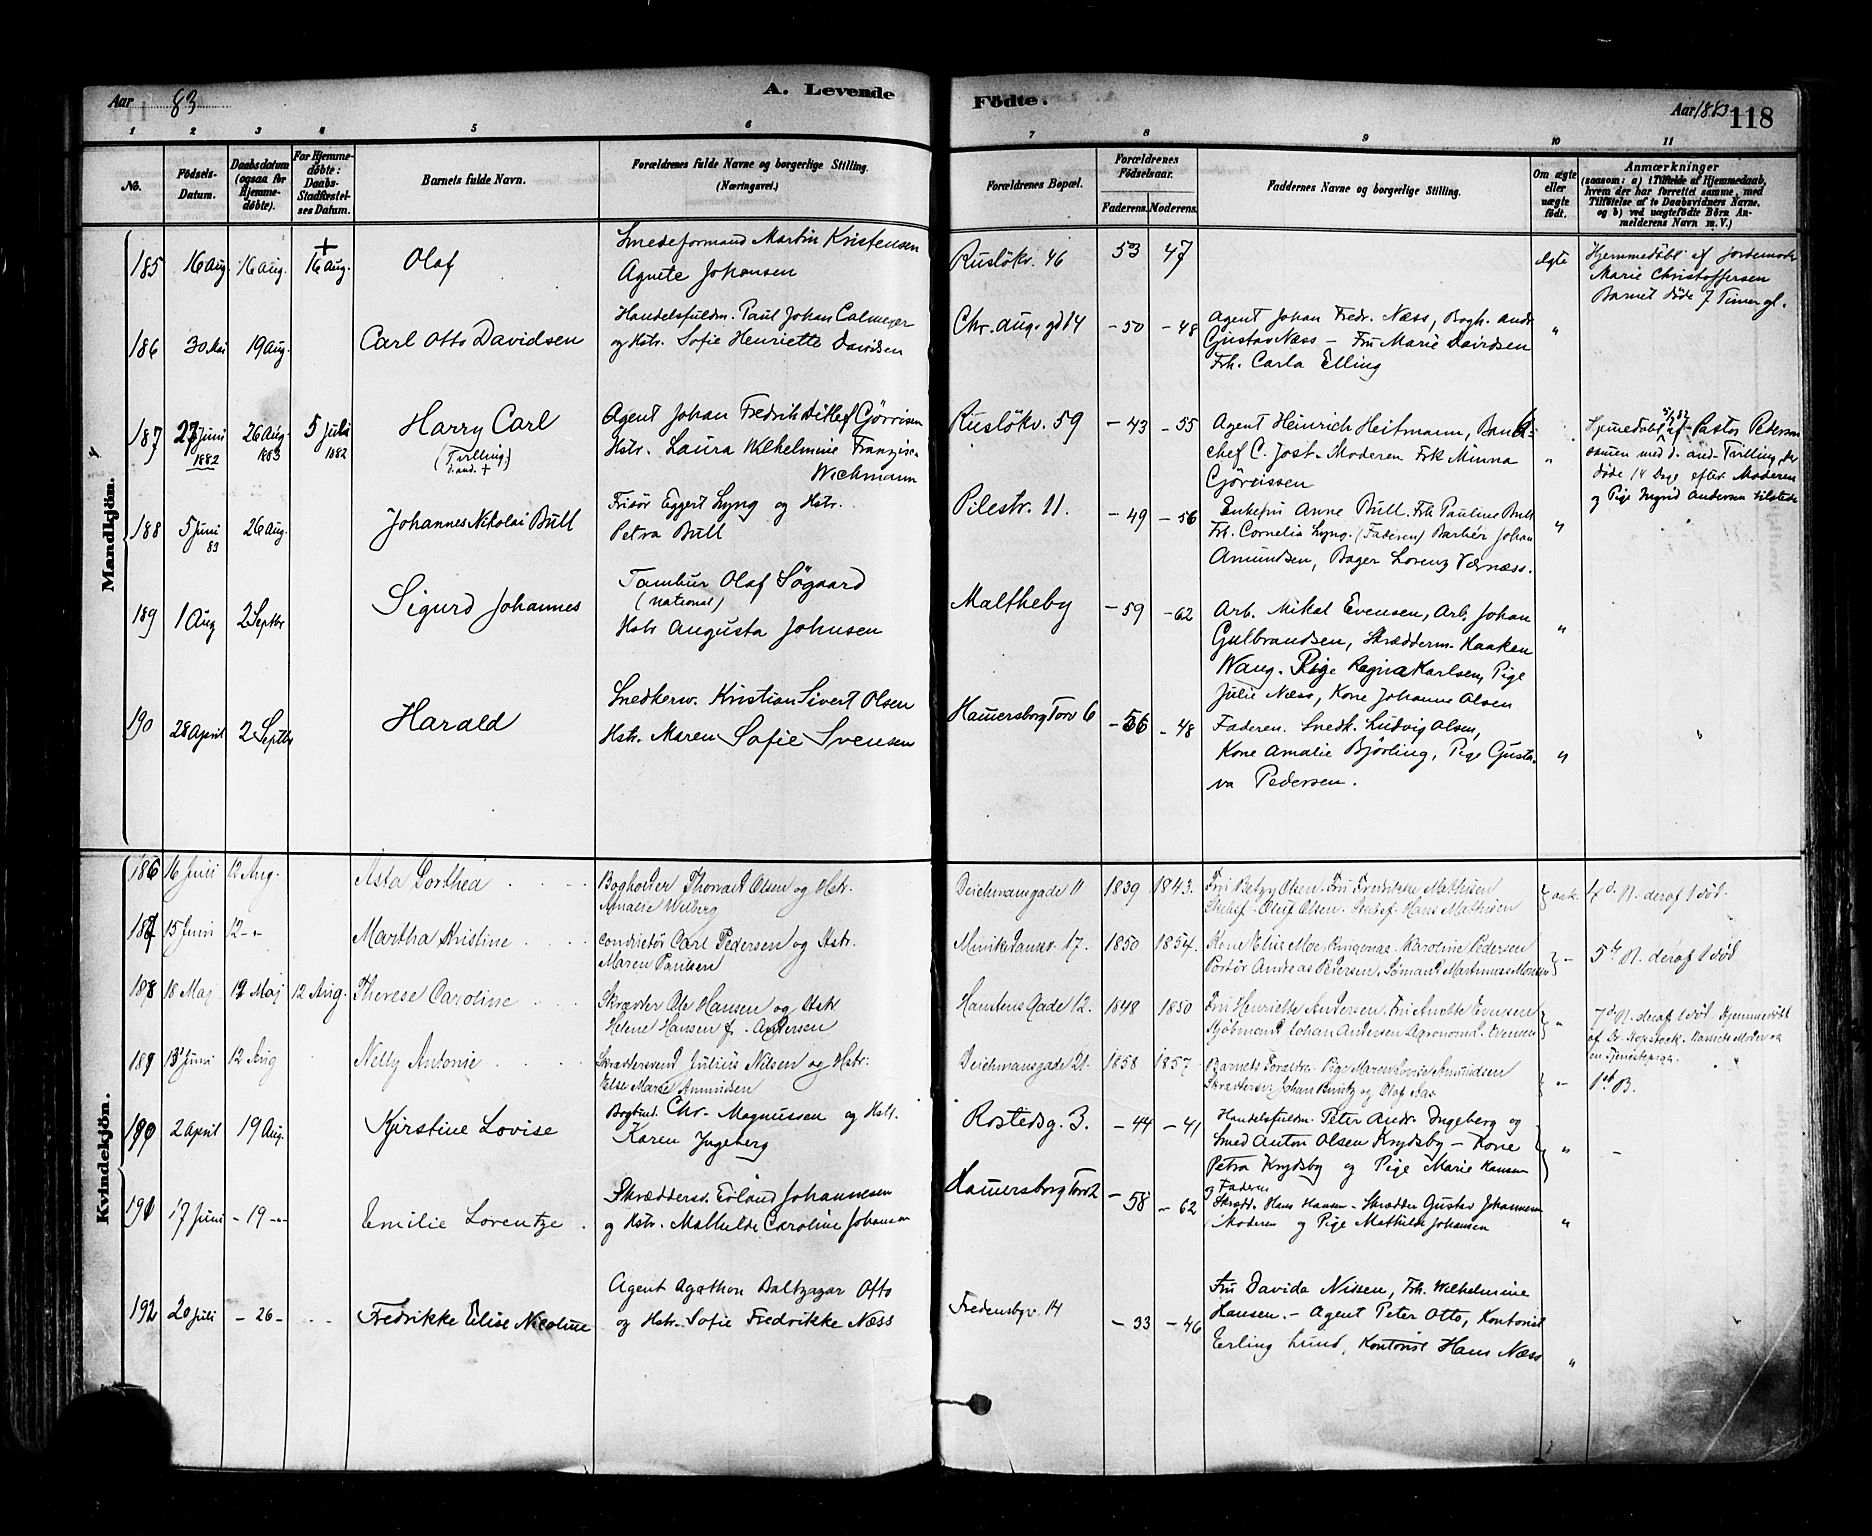 Aar 83
A. Levende
Födte.
Aar 1883 118
1 2 3 4 5 6 7 8 9 10 11
No.
Födsels-Datum.
Daabsdatum (ogsaa for Hjemme-döbte).
For Hjemme-döbte: Daabs-Stadfæstel-ses Datum.
Barnets fulde Navn.
Forældrenes fulde Navne og borgerlige Stilling.
(Næringsvei.)
Forældrenes Bopæl.
Forældrenes Födselsaar.
Faderens. Moderens.
Faddernes Navne og borgerlige Stilling.
Om ægte eller uægte födt.
Anmærkninger
(saasom: a) i Tilfælde af Hjemmedaab, hvem der har forrettet samme, med Tilföielse af to Daabsvidners Navne. og b) ved uægtefödte Börn An-melderens Navn m. V.)
Mandkjön.
185 16 Aug. 16 Aug. + 16 Aug. Olaf
Smedeformand Martin Kristensen
Agnete Johansen
Rusløkv. 46 53 47 ægte
Hjemmedøbt af Jordemoder
Marie Christoffersen
Barnet døde 7 Timer gl.
186 30 Mai 19 Aug. Carl Otto Davidsen
Handelsfuldm. Paul Johan Calmeyer
og Hstr. Sofie Henriette Davidsen
Chr. aug. gd 14 - 50 - 48
Agent Johan Fredr. Næss, Bogh. Andr
Gustav Næss - Fru Marie Davidsen
Frk. Carla Elling
"
187 27 Juni 1882 26 Aug. 1883 5 Juli 1882 Harry Carl
(Tvilling)
Agent Johan Fredrik Ditlef Gjörrisen
Hstr. Laura Wilhelmine Franzisca
Wichmann
Rusløkv. 59 - 43 - 55
Agent Heinrich Heitmann, Bank-
chef C. Jost - Moderen Frk Minna
Gjörrissen
"
Hjemedøbt af Pastor Pedersen
samen med d. and. Tvilling, der
døde 14 Dage efter Moderen
og Pige Ingrid Andersen tilstede
188 5 Juni 83 26 Aug. Johannes Nikolai Bull
Frisør Eggert Lyng og Hstr.
Petra Bull
Pilestr. 11. - 49 - 56
Enkefru Anne Bull. Frk Pauline Bull
Frk. Cornelia Lyng. (Faderen) Barber Johan
Amundsen, Bager Lorenz Værnæss.
"
189 1 Aug 2 Septbr Sigurd Johannes
Tambur Olaf Søgaard
(national)
Hstr Augusta Johnsen
Maltheby - 59 - 62
Arb. Mikal Evensen, Arb. Johan
Gulbrandsen, Skrædderm. Haaken
Wang. Pige Ragna Karlsen, Pige
Julie Næss, Kone Johanne Olsen
"
190 28 April 2 Septbr Harald
Snedkersv. Kristian Sivert Olsen
Hstr. Maren Sofie Svensen
Hamersborg Torv 6 - 56 - 48
Faderen. Snedk. Ludvig Olsen,
Kone Amalie Bjørling, Pige Gusta-
va Pedersen.
"
Kvindekjön.
186 16 Juni 12 Aug. Asta Dorthea
Bogholder Thorvald Olsen og Hstr.
Amalie Wilberg
Deichmansgade 11 1839 1843.
Fru Betzy Olsen. Fru Fredrikke Mathisen
Skibsf. Oluf Olsen. Skibsf. Hans Mathisen
ægte. 4de B. deraf 1 død.
187 15 Juni 12 - " Martha Kristine
Conductør Carl Pedersen og Hstr.
Maren Paulsen
17. 1850 1854.
Kone Elise Moe, Karoline Pedersen
Portør Andreas Pedersen. Sømand Martinius Monsen
5te B. deraf 1 død
188 18 Maj 19 Maj 12 Aug. Therese Caroline
Skrædder Ole Hansen og Hstr.
Helene Hansen f. Andersen
Hausmans Gade 12. 1848 1850
Fru Henriette Andersen. Fru Anette Evensen
Kjøbmand Johan Andersen Agronom Evensen
"
7de B. deraf 1 død. Hjemmedøbt
af Dr. Kopstock. Barnets Moder og
en Tjenestepige.
189 13 Juni 12 Aug Nelly Antonie
Skræddersvend Julius Nilsen og Hstr.
Else Marie Amundsen
Deichmansgade 21. 1858 1857.
Barnets Forældre. Pige Maren Lovise Amundsen
Skræddersv. Johan Bentz og Olaf Aas
1st B.
190 2 April 19 Aug. Kirstine Lovise
Bogbind. Chr. Magnussen og Hstr.
Karen Ingeberg
Rostedsg. 3. - 44 - 41
Handelsfuldm. Peter Andr. Ingeberg og
Smed Anton Olsen Krydsby - Kone
Petra Krydsby og Pige Marie Hansen
og Faderen
"
191 17 Juni - 19 - Emilie Lorentze
Skræddersv. Erland Johannesen
og Hstr. Mathilde Caroline Johansen
Hamersborg Torv 2 - 58 - 62
Skrædd. Hans Hansen - Skrædder Gustav Johannesen
Moderen og Pige Mathilde Johansen
"
192 20 Juli - 26 - Fredrikke Elise Nicoline
Agent Agathon Baltzazar Otto
og Hstr. Sofie Fredrikke Næss
Fredensbgv. 14 - 33 - 46
Fru Davida Nilsen, Frk. Wilhelmine
Hansen. - Agent Peter Otto, Kontorist
Erling Lund, Kontorist Hans Næss
"